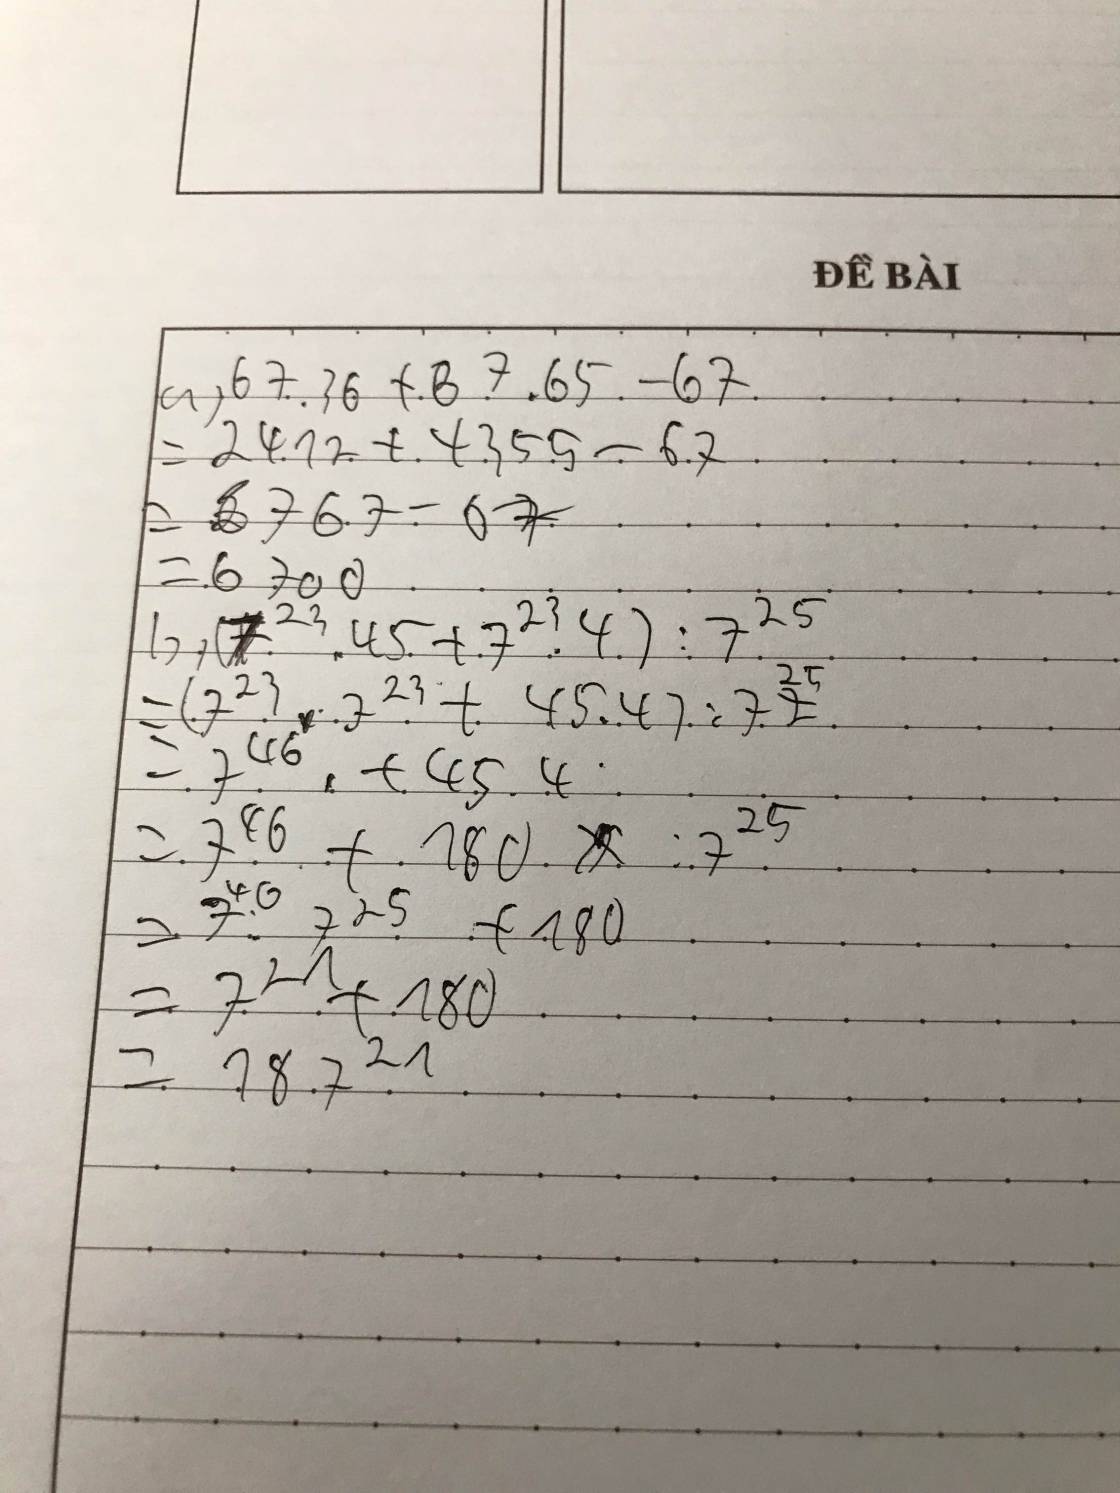 ĐỀ BÀI
a, 67.36 + 67.65 - 67
= 2412 + 4355 - 67
= 6767 - 67
= 6700
b, (7²³.45 + 7²³.4) : 7²⁵
= (7²³.7²³ + 45.4) : 7²⁵
= 7⁴⁶. + 45.4
= 7⁴⁶ + 180 : 7²⁵
= 7⁴⁶ 7²⁵ + 180
= 7²¹ + 180
= 187²¹